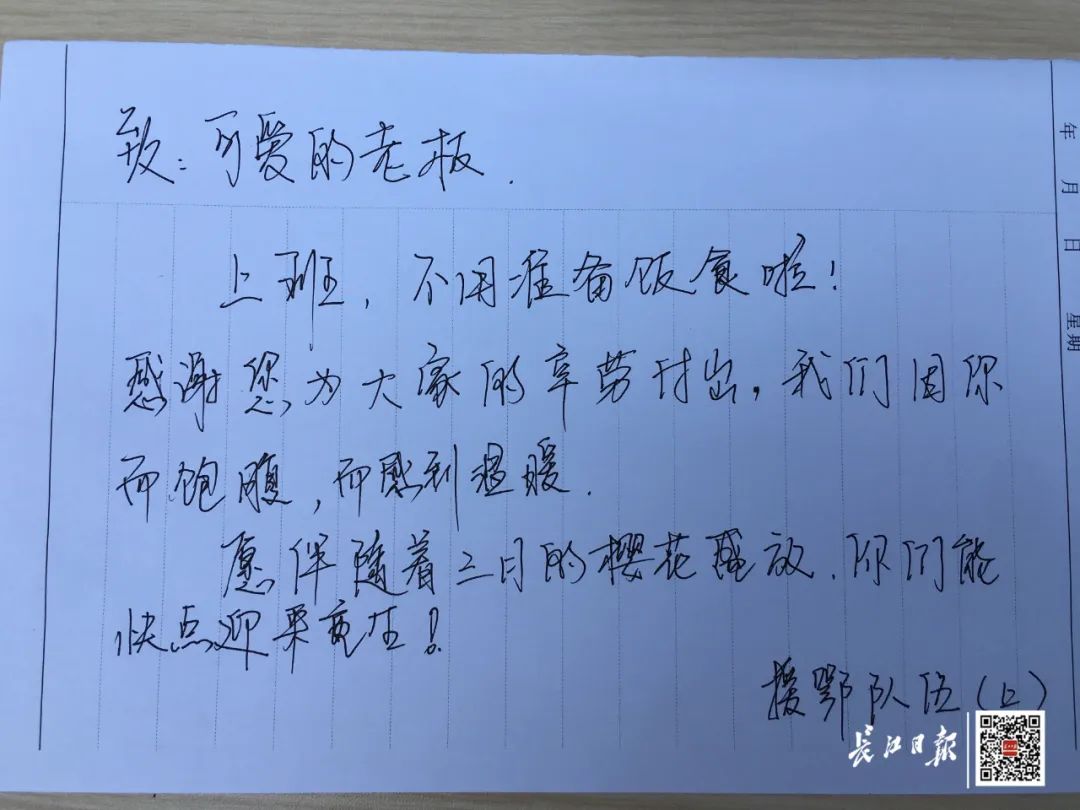 致：可爱的老板.
上班，不用准备饭食啦！
感谢您为大家的辛劳付出，我们因你
而饱腹，而感到温暖.
愿伴随着三月的樱花盛放.你们能
快点迎来重生！
援鄂队伍（）
年 月 日 星期
长江日报